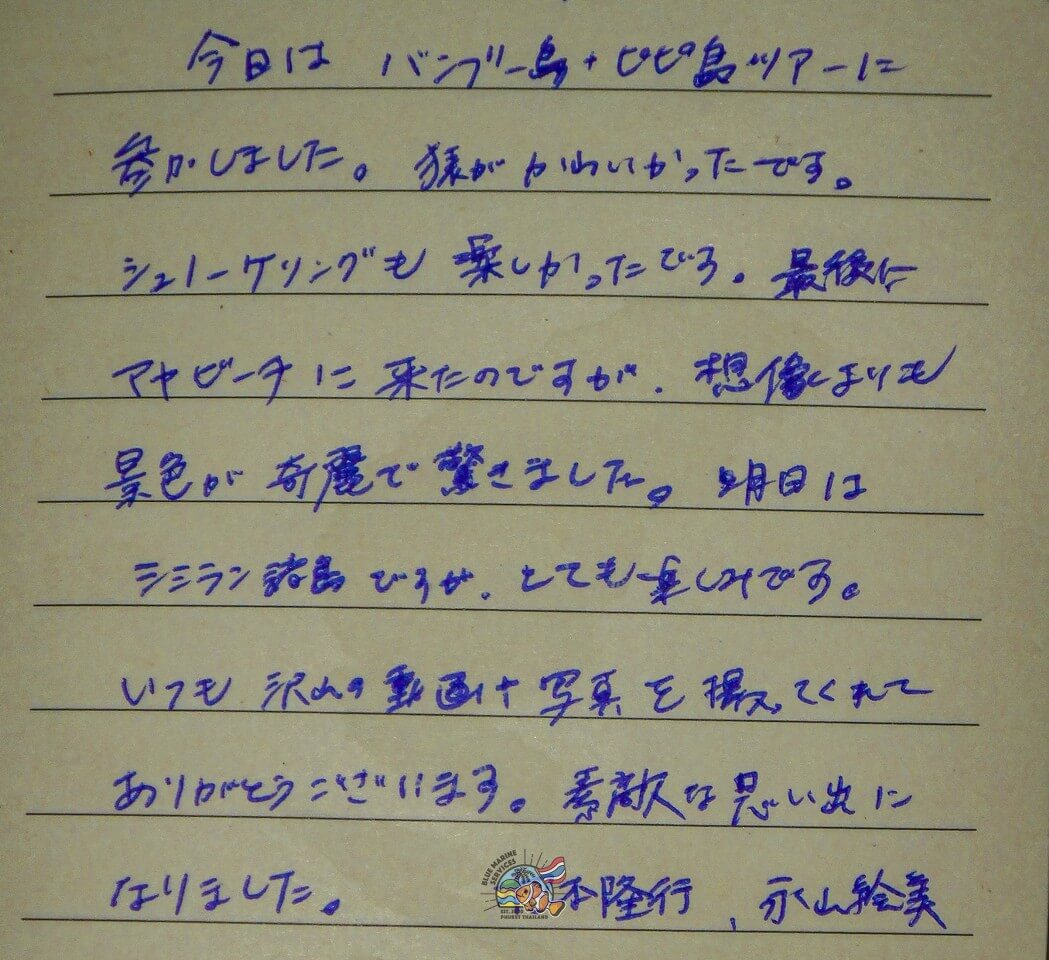 今日は バンブー島+ピピ島ツアーに
参加しました。猿がかわいかったです。
シュノーケリングも楽しかったです。最後に
マヤビーチに来たのですが、想像よりも
景色が奇麗で驚きました。明日は
シミラン諸島ですが、とても楽しみです。
いつも沢山の動画や写真を撮ってくれて
ありがとうございます。素敵な思い出に
なりました。 本隆行、永山絵美
BLUE MARINE SERVICES
PHUKET THAILAND